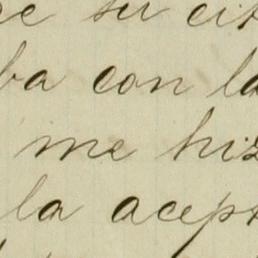 de su cit
ba con la
me hiz
la acept